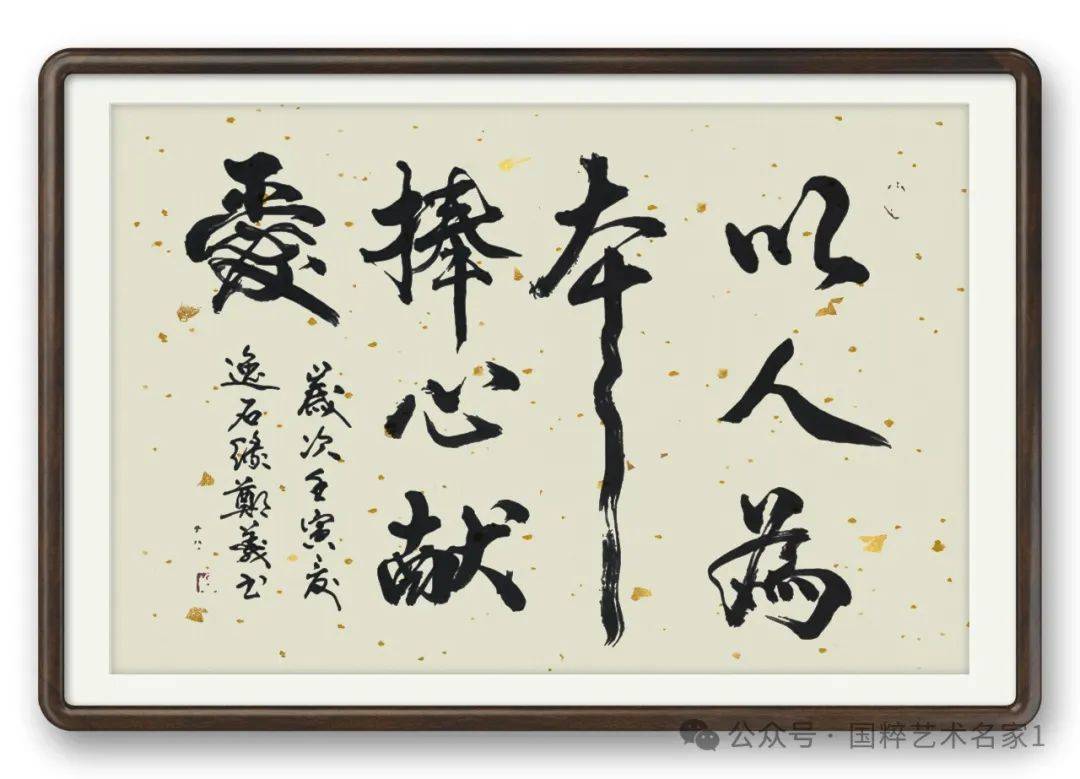 以人為
本
捧心献
愛
歲次壬寅夏
逸石緣鄭義书
公众号 · 国粹艺术名家1